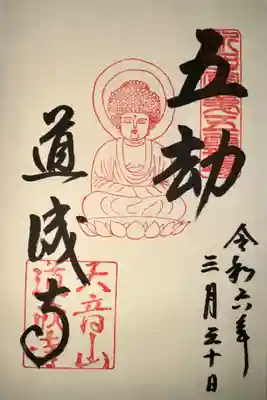 五劫
令和六年
三月 十日
道成寺
天音山
道成寺